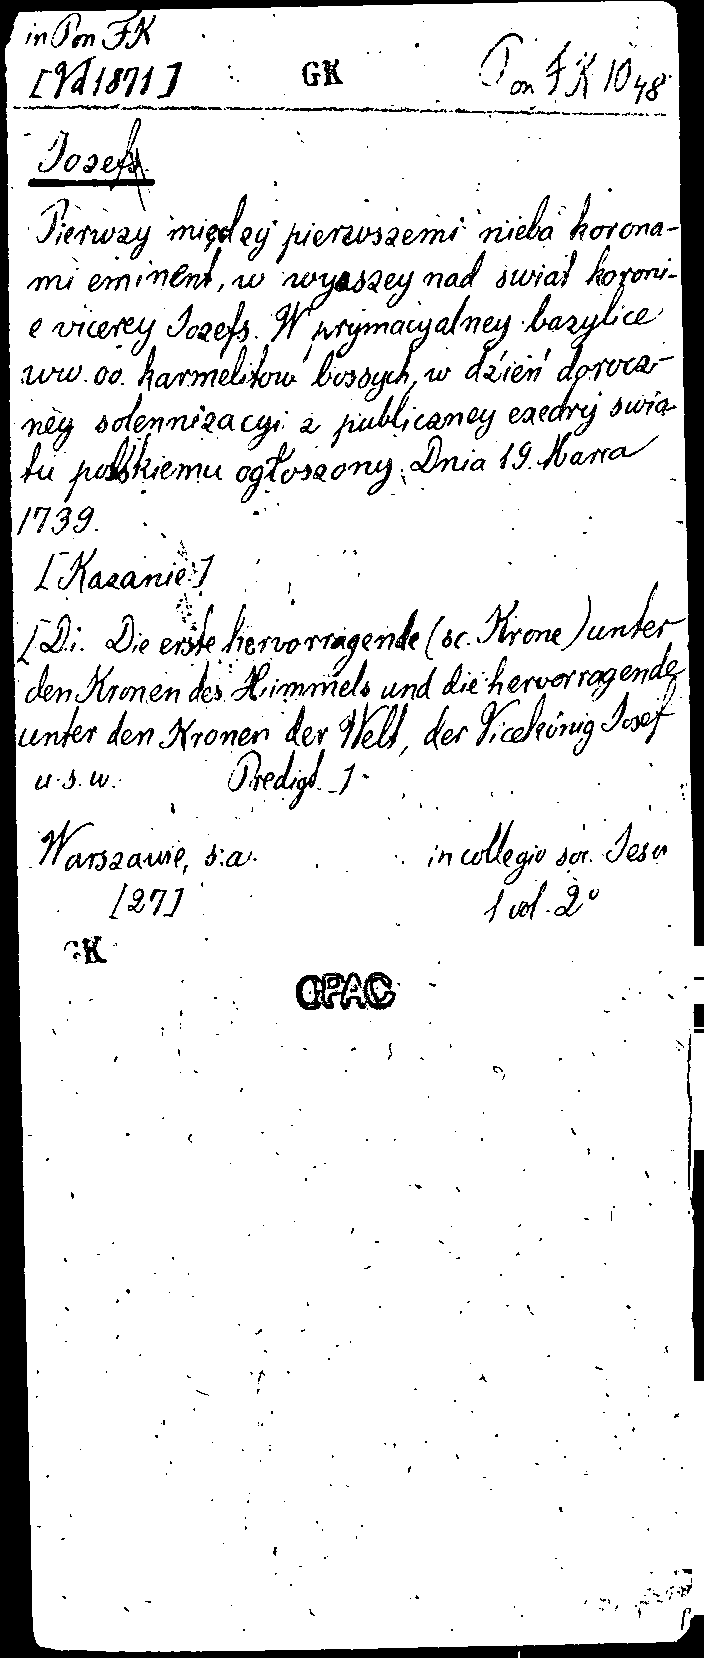 in Pon FK
[Yd 1871] GK Pon FK 10 48
Jozefs
Pierwzy między pierwszemi nieba korona-
mi eminent, w wyzszey nad swiat koroni-
e vicerey Jozefs. W prymacyalney bazylice
ww. oo. karmelitow bossych, w dzień dorocz-
ney solennizacyi z publiczney exedry swia-
tu polskiemu ogłoszony. Dnia 19. Marca
1739.
[Kazanie]
[D.i. Die erste hervorragende (sc. Krone) unter
den Kronen des Himmels und die hervorragende
unter den Kronen der Welt, der Vicekönig Josef
u.s.w. Predigt.]
Warszawie, s.a. in collegio soc. Jesu
[27] 1 vol. 2°
GK
OPAC